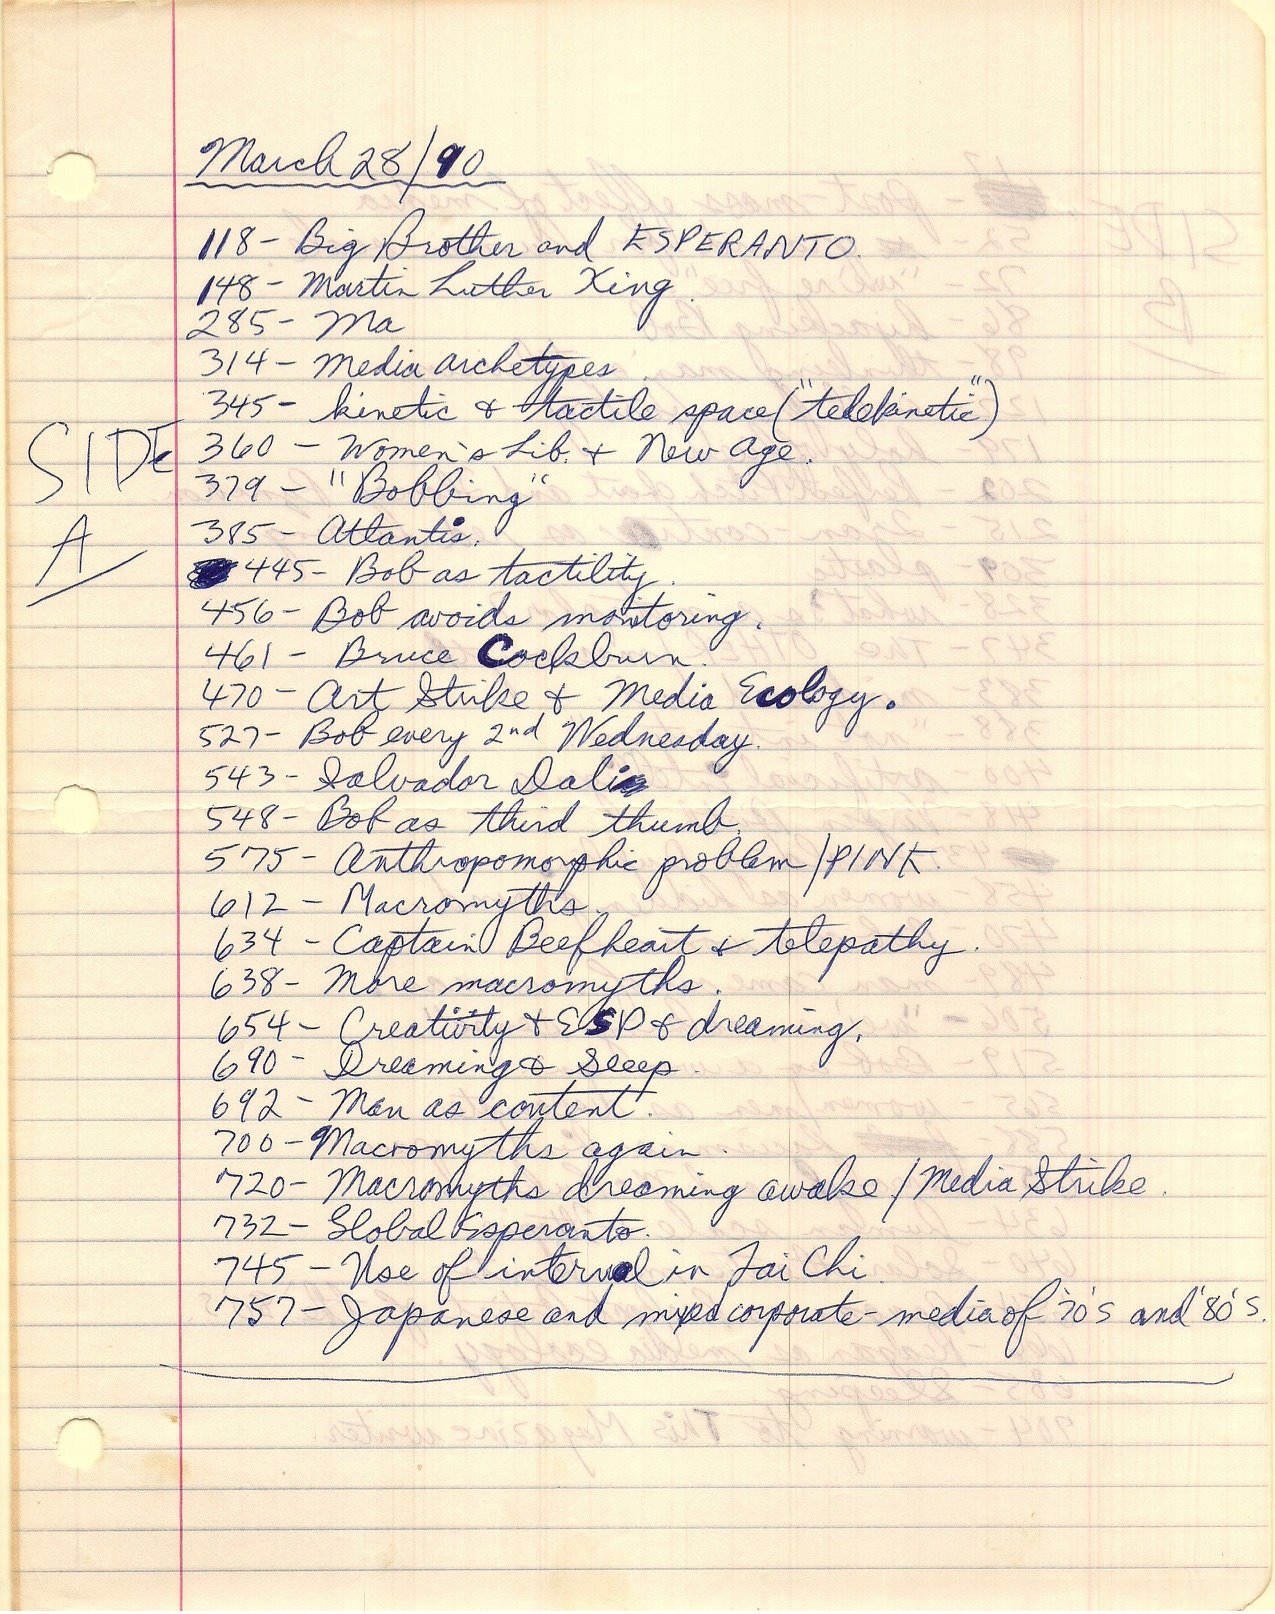 March 28/90
118- Big Brother and ESPERANTO.
148- Martin Luther King.
285- Ma
314- Media archetypes.
345- kinetic & tactile space ("telekinetic")
SIDE
A
360 - Women's Lib. & New Age.
379 - "Bobbing"
385- Atlantis.
445- Bob as tactility.
456- Bob avoids monitoring.
461- Bruce Cockburn.
470- Art Strike & Media Ecology.
527- Bob every 2nd Wednesday.
543- Salvador Dali
548- Bob as third thumb.
575- Anthropomorphic problem/PINK.
612- Macromyths.
634 - Captain Beefheart & telepathy.
638- More macromyths.
654- Creativity & ESP & dreaming.
690- Dreaming & Sleep.
692- Man as content.
700- Macromyths again.
720- Macromyths dreaming awake/Media Strike.
732- Global Esperanto.
745 - Use of interval in Tai Chi.
757- Japanese and mixed corporate-media of '70's and '80's.